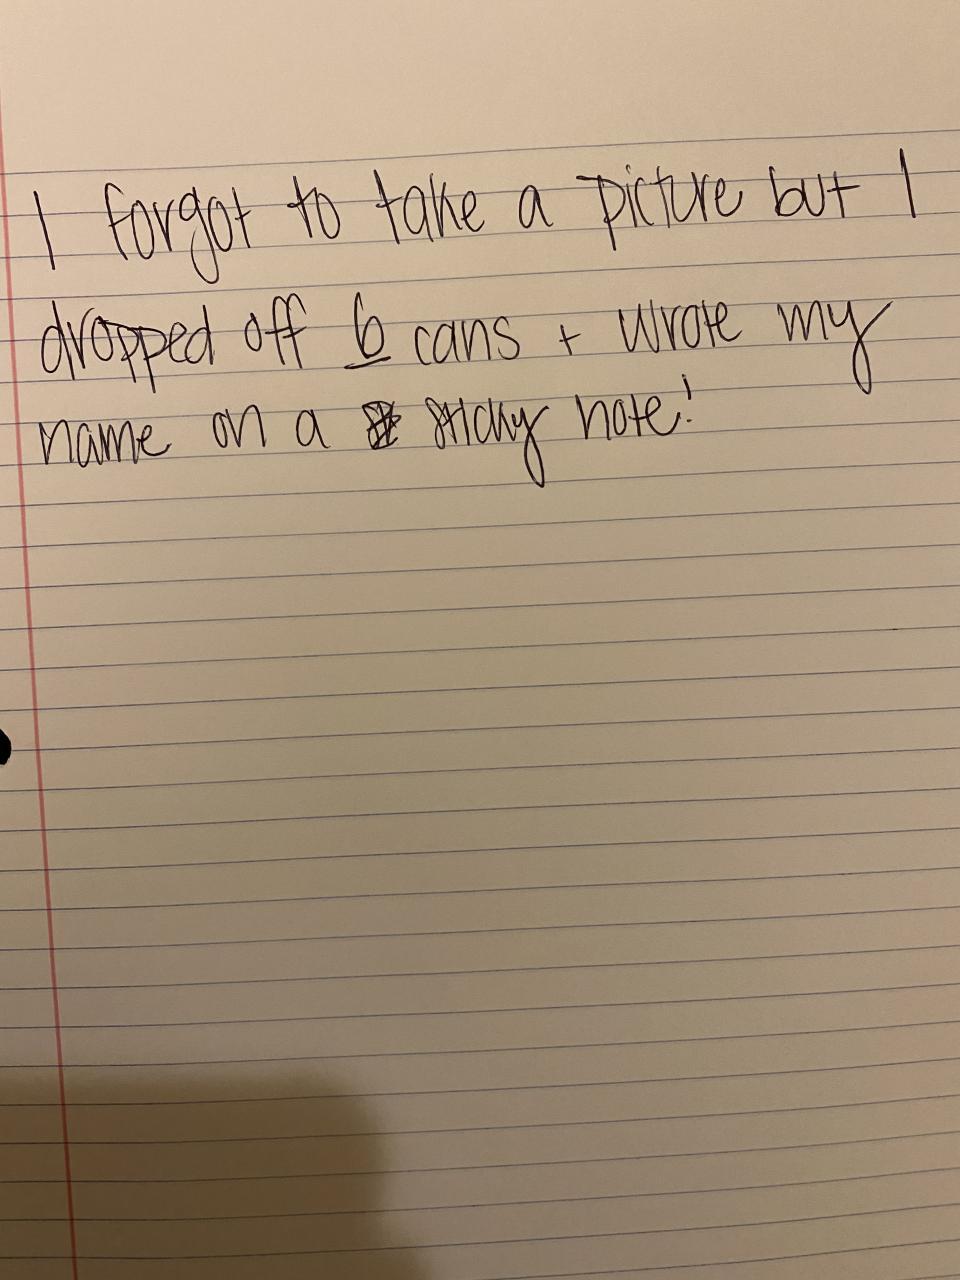 I forgot to take a picture but I
dropped off 6 cans + wrote my
name on a sticky note!